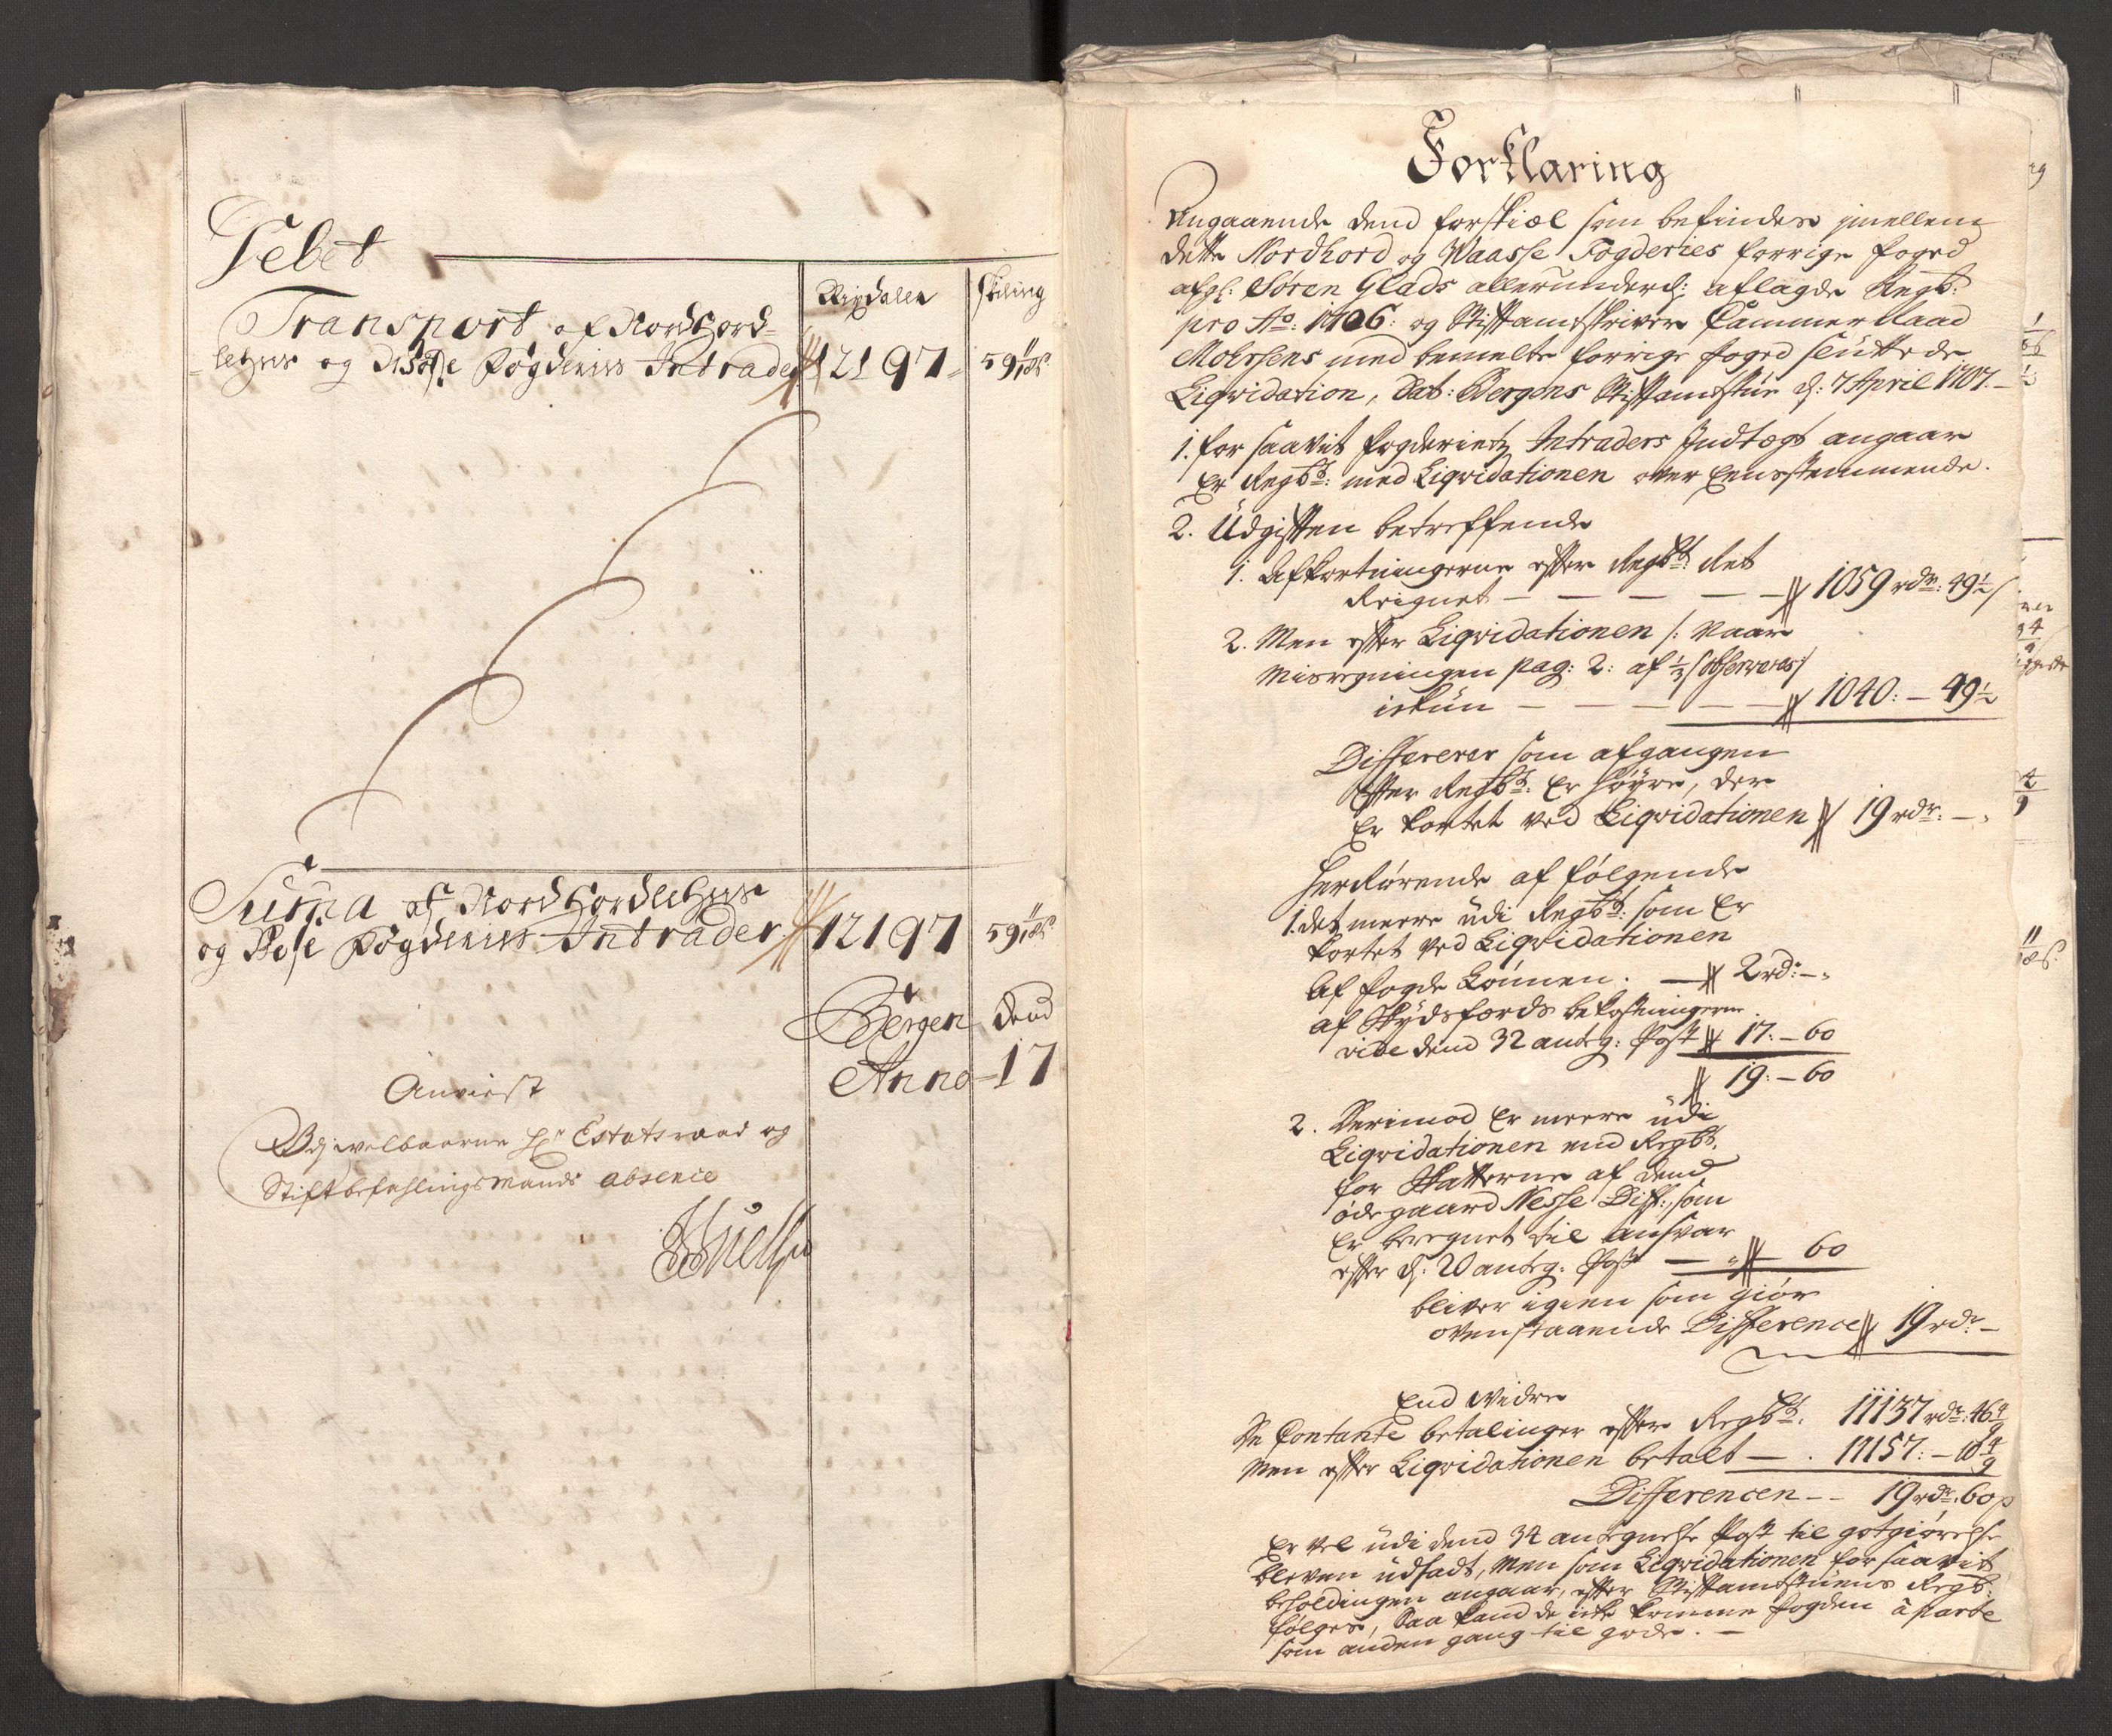 Debet
Rixdaler
skiling
Transport af Nordhord-
lehns og Wosse Fogderies Intrader 12197 59
Suma af Nordhordlehns
og Wosse Fogderies Intrader 12197 59
Bergen dend
Anno 17
Anviist
Velbaarne Hr Estatsraad og
Stiftbefahlingsmands absence
Forklaring
Angaaende dend forskiæl som befindes imellem
dette Nordhord og Waasse Fogderies forrige foged
afgl: Søren Glads allerunderd: aflagde Regb:
pro Ao: 1706: og Stiftamtskriver Cammer Raad
med bemelte forrige foged sluttede
Liqvidation, Dat: Bergens Stiftamtstue d: 7 April 1707.
1. for saavit fogderiets Intraders Indtægt angaar
Er Regbs: med Liqvidationen over Eensstemmende.
2. Udgiften betreffende
1. Afkortningerne efter Regbs:
Reignet — — — — — 1059 rdr: 49½ s
2. Men efter Liqvidationen /: naar
Misregningen pag: 2: af ½ s observeres :/
ickun — — — — — 1040: — 49½
Differerer som afgangen
efter Regbs: Er høyre, der
Er kortet ved Liqvidationen 19 rdr: —
Herrørende af følgende
1. det meere udi Regbs: som Er
kortet ved Liqvidationen
af fogde Lønnen. — 2 rd: —
af Skydsferds bekostningerne
vide dend 32 antg: Post 17: — 60
19: — 60
2. Derimod Er meere udi
Liqvidationen end Regbs:
for Skatterne af dend
øde gaard Nesse Diff:, som
Er beregnet til ansvar
efter d: 20 antg: Post — 60
bliver igien som giør
ovenstaaende Difference 19 rdr —
End Videre
De Contante betalinger efter Regbs: 11137 rdr: 46 4/9
Men efter Liqvidationen betalt — 11157: — 10 4/9
Differencen — 19 rdr: 60 s
Er vel udi dend 34 antegnelse Post til gotgiørelse
bleven udsadt, Men som Liqvidationen for saavit
beholdingen angaar, efter Stiftamtstuens Regb:
følges, Saa kand de icke komme fogden à parte
som anden gang til gode. —